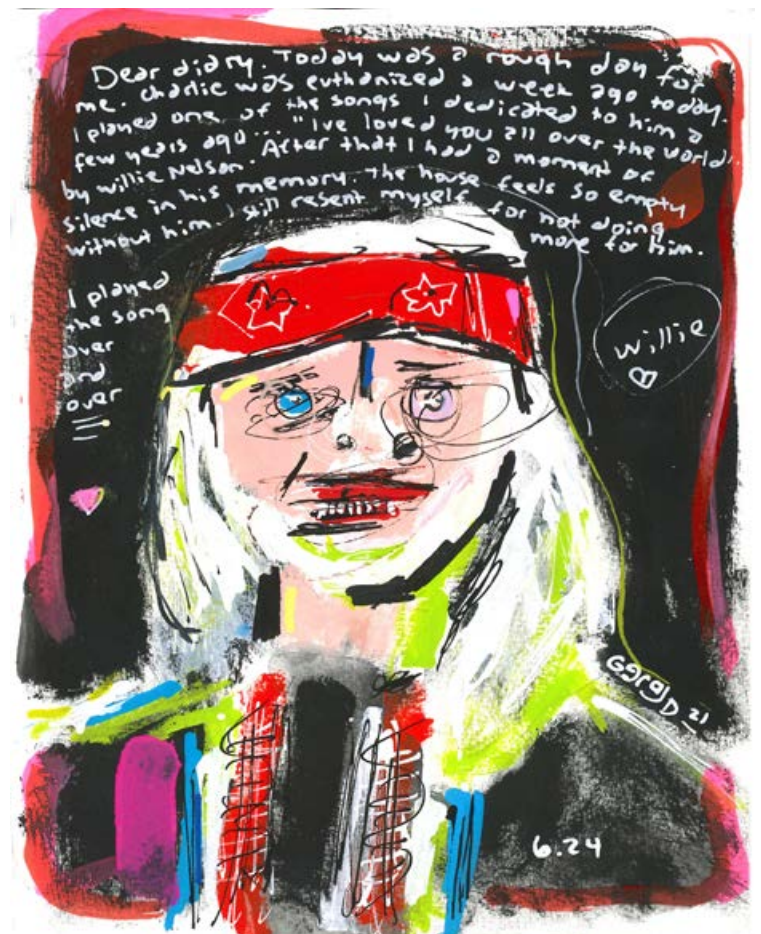 Dear diary. Today was a rough day for
me. Charlie was euthanized a week ago today.
I played one of the songs I dedicated to him a
few years ago... "Ive loved you all over the world"
by Willie Nelson. After that I had a moment of
silence in his memory. The house feels so empty
without him I still resent myself for not doing
more for him.
I played
the song
over
and
over
Willie
6.24